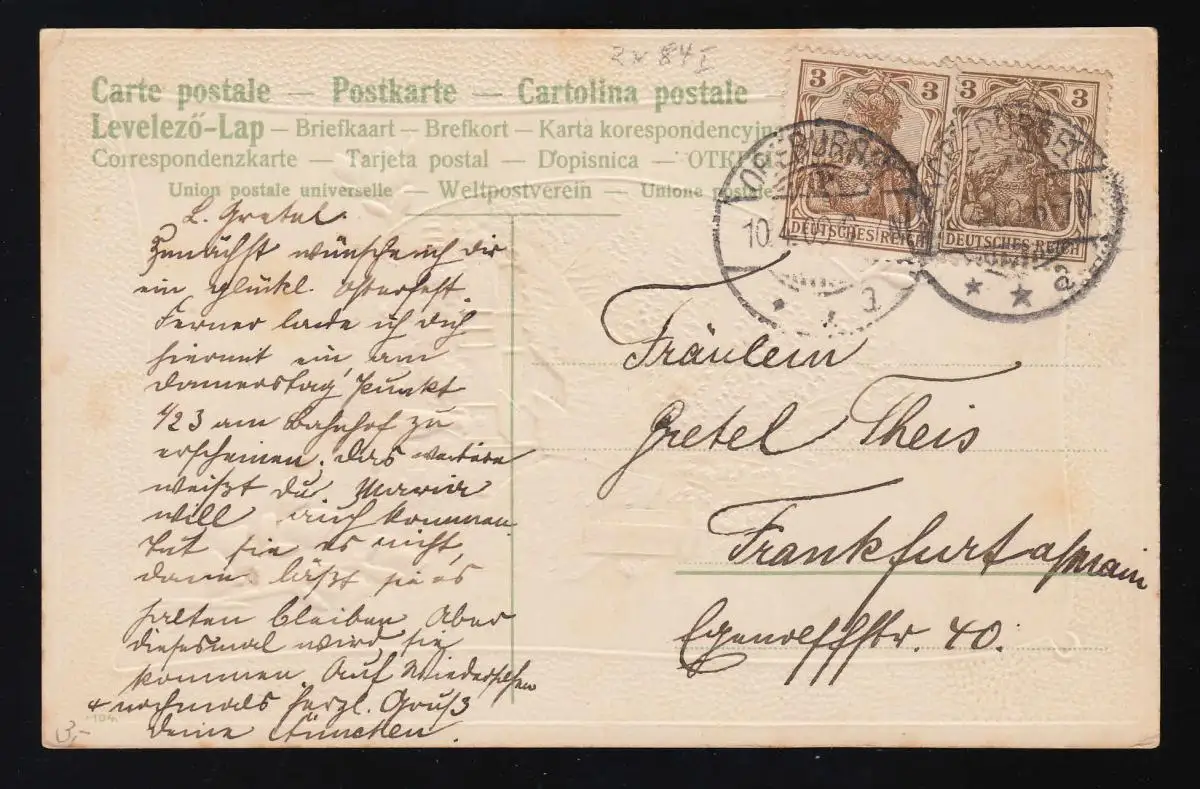 2 x 84 I
Carte postale — Postkarte — Cartolina postale
Levelező-Lap — Briefkaart — Brefkort — Karta korespondencyjn
Correspondenzkarte — Tarjeta postal — Dopisnica — OTK
Union postale universelle — Weltpostverein — Unione postale
3 3
DEUTSCHES REICH
3 3
DEUTSCHES REICH
10.4.09
L. Gretel.
Zunächst wünsche ich dir
ein glückl. Osterfest.
Ferner lade ich dich
hiermit ein am
Donnerstag, Punkt
1/23 am Bahnhof zu
erscheinen. Das weitere
weißt du. Maria
will auch kommen.
Tut sie es nicht,
dann läßt sie es
halten bleiben. Aber
diesesmal wird sie
kommen. Auf Wiedersehen
+ nochmals herzl. Gruß
deine
104
3,-
Fräulein
Gretel Theis
Frankfurt a/Main
Egenolffstr. 40.